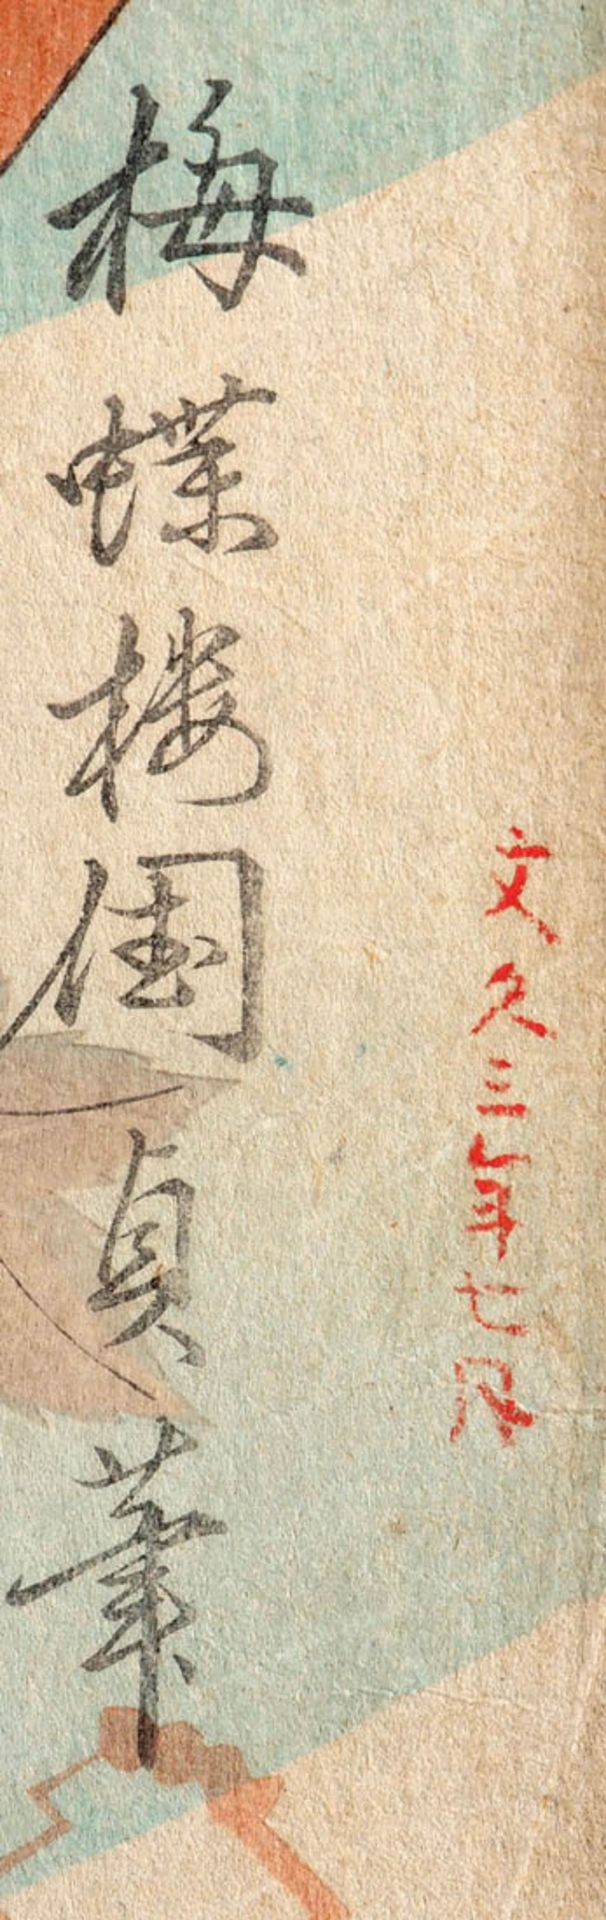 文久三年七月
梅蝶楼国貞筆